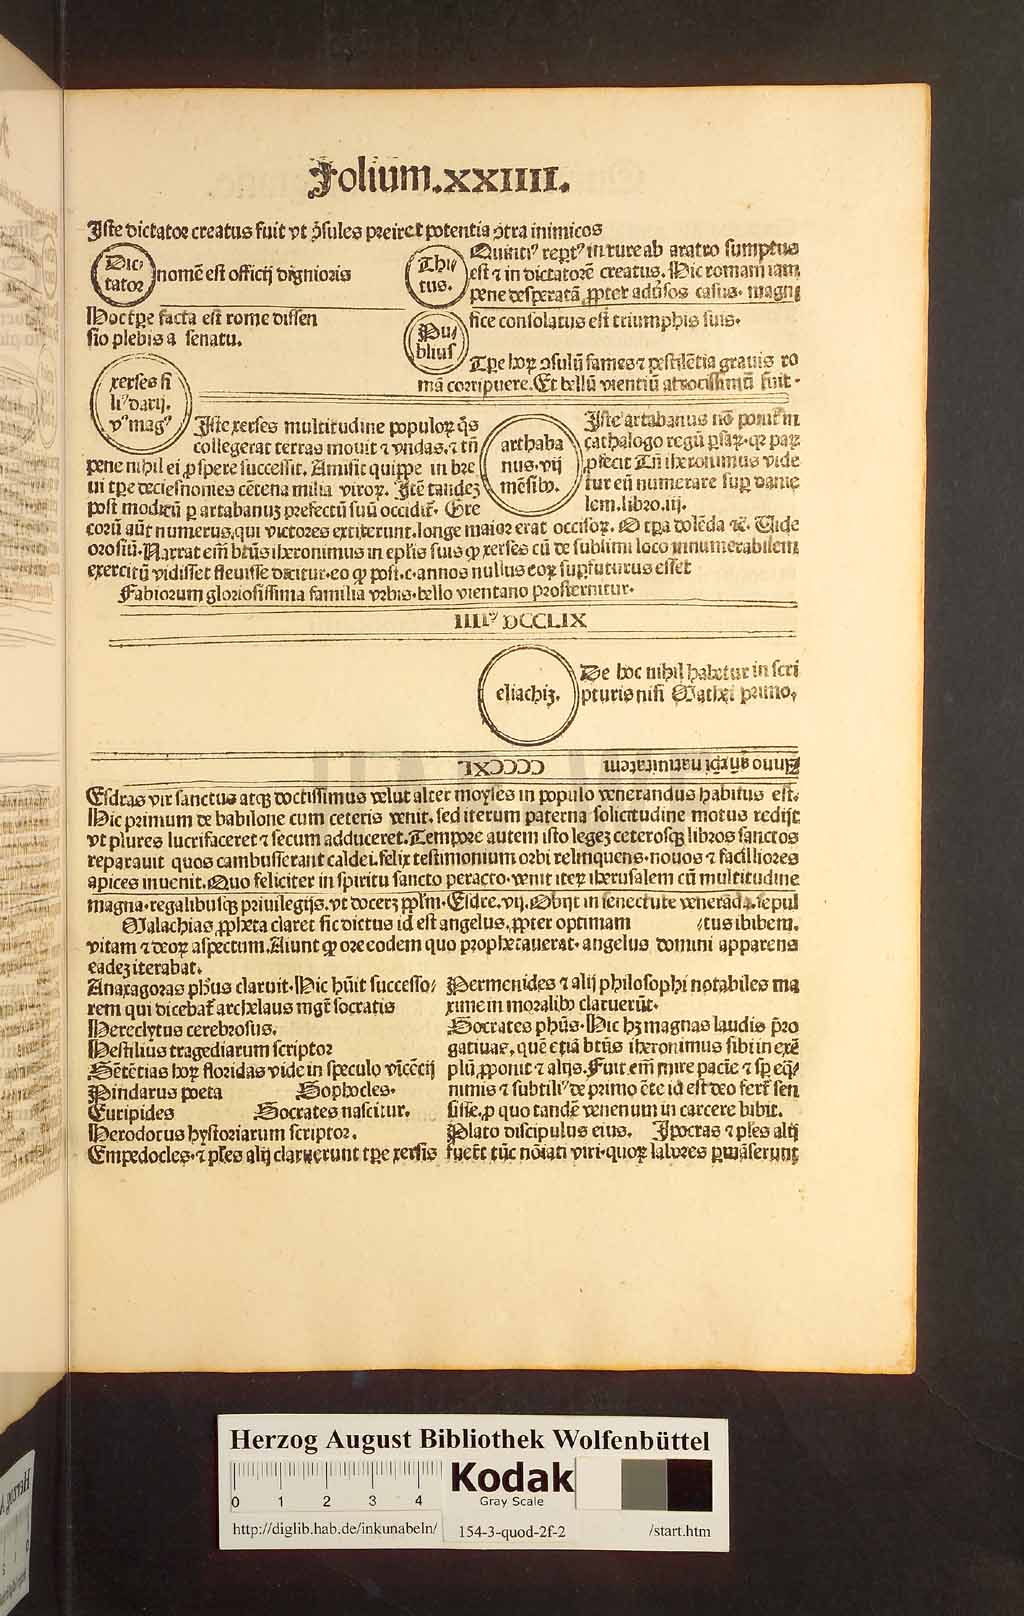 Folium.xxiiii.
Iste dictator creatus fuit vt ꝯsules preiret potentia ꝯtra inimicos
Dic⸗
tator
nomē est officij dignioris
Thi⸗
tus.
Quintiꝰ reptꝰ in rure ab aratro sumptus
est ⁊ in dictatorē creatus. Hic romam iam
pene desperatā ꝓpter aduersos casus. magni
fice consolatus est triumphis suis.
Hoc tꝑe facta est rome dissen
sio plebis a senatu.
Pu⸗
blius
Tꝑe hoꝝ ꝯsulū fames ⁊ pestilētia grauis ro
mā corripuere. Et bellū vientiū atrocissimū fuit.
xerses fi
liꝰ darij.
vꝰ magꝰ
Iste xerses multitudine populoꝝ q̄s
collegerat terras mouit ⁊ vndas. ⁊ tn̄
pene nihil ei ꝓspere successit. Amisit quippe in bre
ui tꝑe deciesnomes cētena milia viroꝝ. Itē tandeꝫ
post modicū ꝑ artabanuꝫ prefectū suū occidit̄. Gre
arthaba
nus. vij
mēsibꝰ.
Iste artabanus nō ponit̄ in
cathalogo regū ꝑsaꝝ. qꝛ paꝝ
ꝓfecit Tn̄ iheronimus vide
tur eū numerare suꝑ danie
lem. libro. iij.
corū aūt numerus, qui victores extiterunt. longe maior erat occisoꝝ. O tꝑa dolēda ⁊c̄. Vide
orosiū. Narrat em̄ btūs iheronimus in eplīs suis ꝙ xerses cū de sublimi loco innumerabilem
exercitū vidisset fleuisse dicitur. eo ꝙ post. c. annos nullus eoꝝ suꝑfuturus esset
Fabiorum gloriosissima familia vrbis. bello vientano prosternitur.
IIIIᵐ DCCLIX
eliachiꝫ.
De hoc nihil habetur in scri
pturis nisi Mathei primo,
Anno añ xp̄i natiuitatem CCCCXL
Esdras vir sanctus atqꝫ doctissimus velut alter moyses in populo venerandus habitus est.
Hic primum de babilone cum ceteris venit. sed iterum paterna solicitudine motus redijt
vt plures lucrifaceret ⁊ secum adduceret. Tempore autem isto legeꝫ ceterosqꝫ libros sanctos
reparauit quos cambusserant caldei. felix testimonium orbi relinquens. nouos ⁊ facilliores
apices inuenit. Quo feliciter in spiritu sancto peracto. venit iteꝝ iherusalem cū multitudine
magna. regalibusqꝫ priuilegijs. vt doceꝫ pplm̄. Esdre. vij. Obijt in senectute veneranda. sepul
Malachias ꝓpheta claret sic dictus id est angelus. ꝓpter optimam /tus ibidem.
vitam ⁊ decoꝝ aspectum. Aiunt ꝙ ore eodem quo prophetauerat. angelus domini apparens
eadeꝫ iterabat.
Anaxagoras ph̄us claruit. Hic hūit successo/
rem qui dicebat̄ archelaus mgr̄ socratis
Hereclytus cerebrosus.
Hestilius tragediarum scriptor
Sētētias hoꝝ floridas vide in speculo vīcētij
Pindarus poeta Sophocles.
Euripides Socrates nascitur.
Herodotus hystoriarum scriptor.
Empedocles. ⁊ pl̄es alij claruerunt tꝑe xersis
Permenides ⁊ alij philosophi notabiles ma
xime in moralibꝰ claruerūt.
Socrates ph̄us. Hic hꝫ magnas laudis p̄ro
gatiuas, quē etiā btūs iheronimus sibi in exē
plū ꝓponit ⁊ alijs. Fuit em̄ mire pacie ⁊ sp eq̄⸗
nimis ⁊ subtiliꝰ de primo ēte id est deo fert̄ sen
sisse. ꝓ quo tandē venenum in carcere bibit.
Plato discipulus eius. Ipocras ⁊ pl̄es alij
fuer̄t tūc nōiati viri. quoꝝ labores ꝑmāserunt
Herzog August Bibliothek Wolfenbüttel
0 1 2 3 4
Kodak
Gray Scale
http://diglib.hab.de/inkunabeln/ 154-3-quod-2f-2 /start.htm